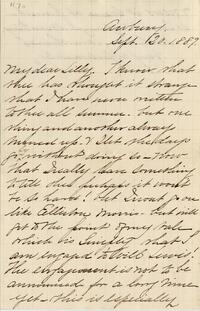 Sept. 20. 1889.
My dear Lilly. I know that
thee has thought it strange
that I have never written
to thee all summer. but one
thing and another always
turned up. & I let the days
go without doing so - now
that I really have something
to tell thee perhaps it wont
be so hard! Yet I wont go on
like Ellerton more - but will
get to the point of my tale
which is Simply that I
am engaged to Will Lewis!
The engagement is not to be
announced for a long time
yet - this is especially